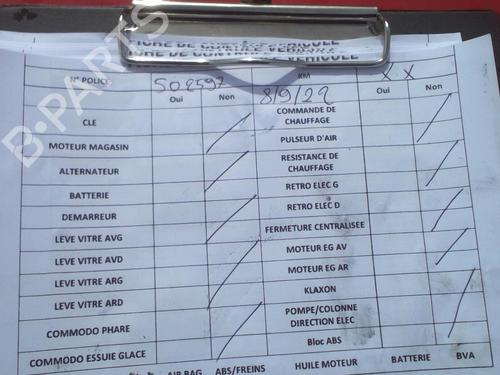 FICHE DE CONTROLE VEHICULE
N° POLICE 508597 KM X X
Oui Non 8/9/22 Oui Non
CLE COMMANDE DE CHAUFFAGE
MOTEUR MAGASIN PULSEUR D'AIR
ALTERNATEUR RESISTANCE DE CHAUFFAGE
BATTERIE RETRO ELEC G
DEMARREUR RETRO ELEC D
LEVE VITRE AVG FERMETURE CENTRALISEE
LEVE VITRE AVD MOTEUR EG AV
LEVE VITRE ARG MOTEUR EG AR
LEVE VITRE ARD KLAXON
COMMODO PHARE POMPE/COLONNE DIRECTION ELEC
COMMODO ESSUIE GLACE Bloc ABS
AIR BAG ABS/FREINS HUILE MOTEUR BATTERIE BVA